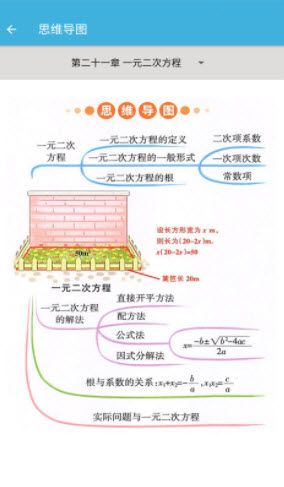 思维导图
第二十一章 一元二次方程
思维导图
一元二次方程的定义
一元二次
方程
一元二次方程的一般形式
一元二次方程的根
二次项系数
一次项次数
常数项
设长方形宽为 x m,
则长为(20-2x)m.
x(20-2x)=50
50m²
篱笆长 20m
一元二次方程
一元二次方程
的解法
直接开平方法
配方法
公式法
因式分解法
x=\frac{-b±\sqrt{b²-4ac}}{2a}
根与系数的关系:x₁+x₂=-\frac{b}{a},x₁x₂=\frac{c}{a}
实际问题与一元二次方程